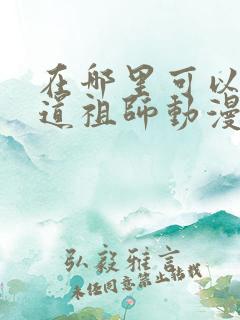 在哪里可以
道祖師動漫
弘毅雅言
未经同意禁止转载